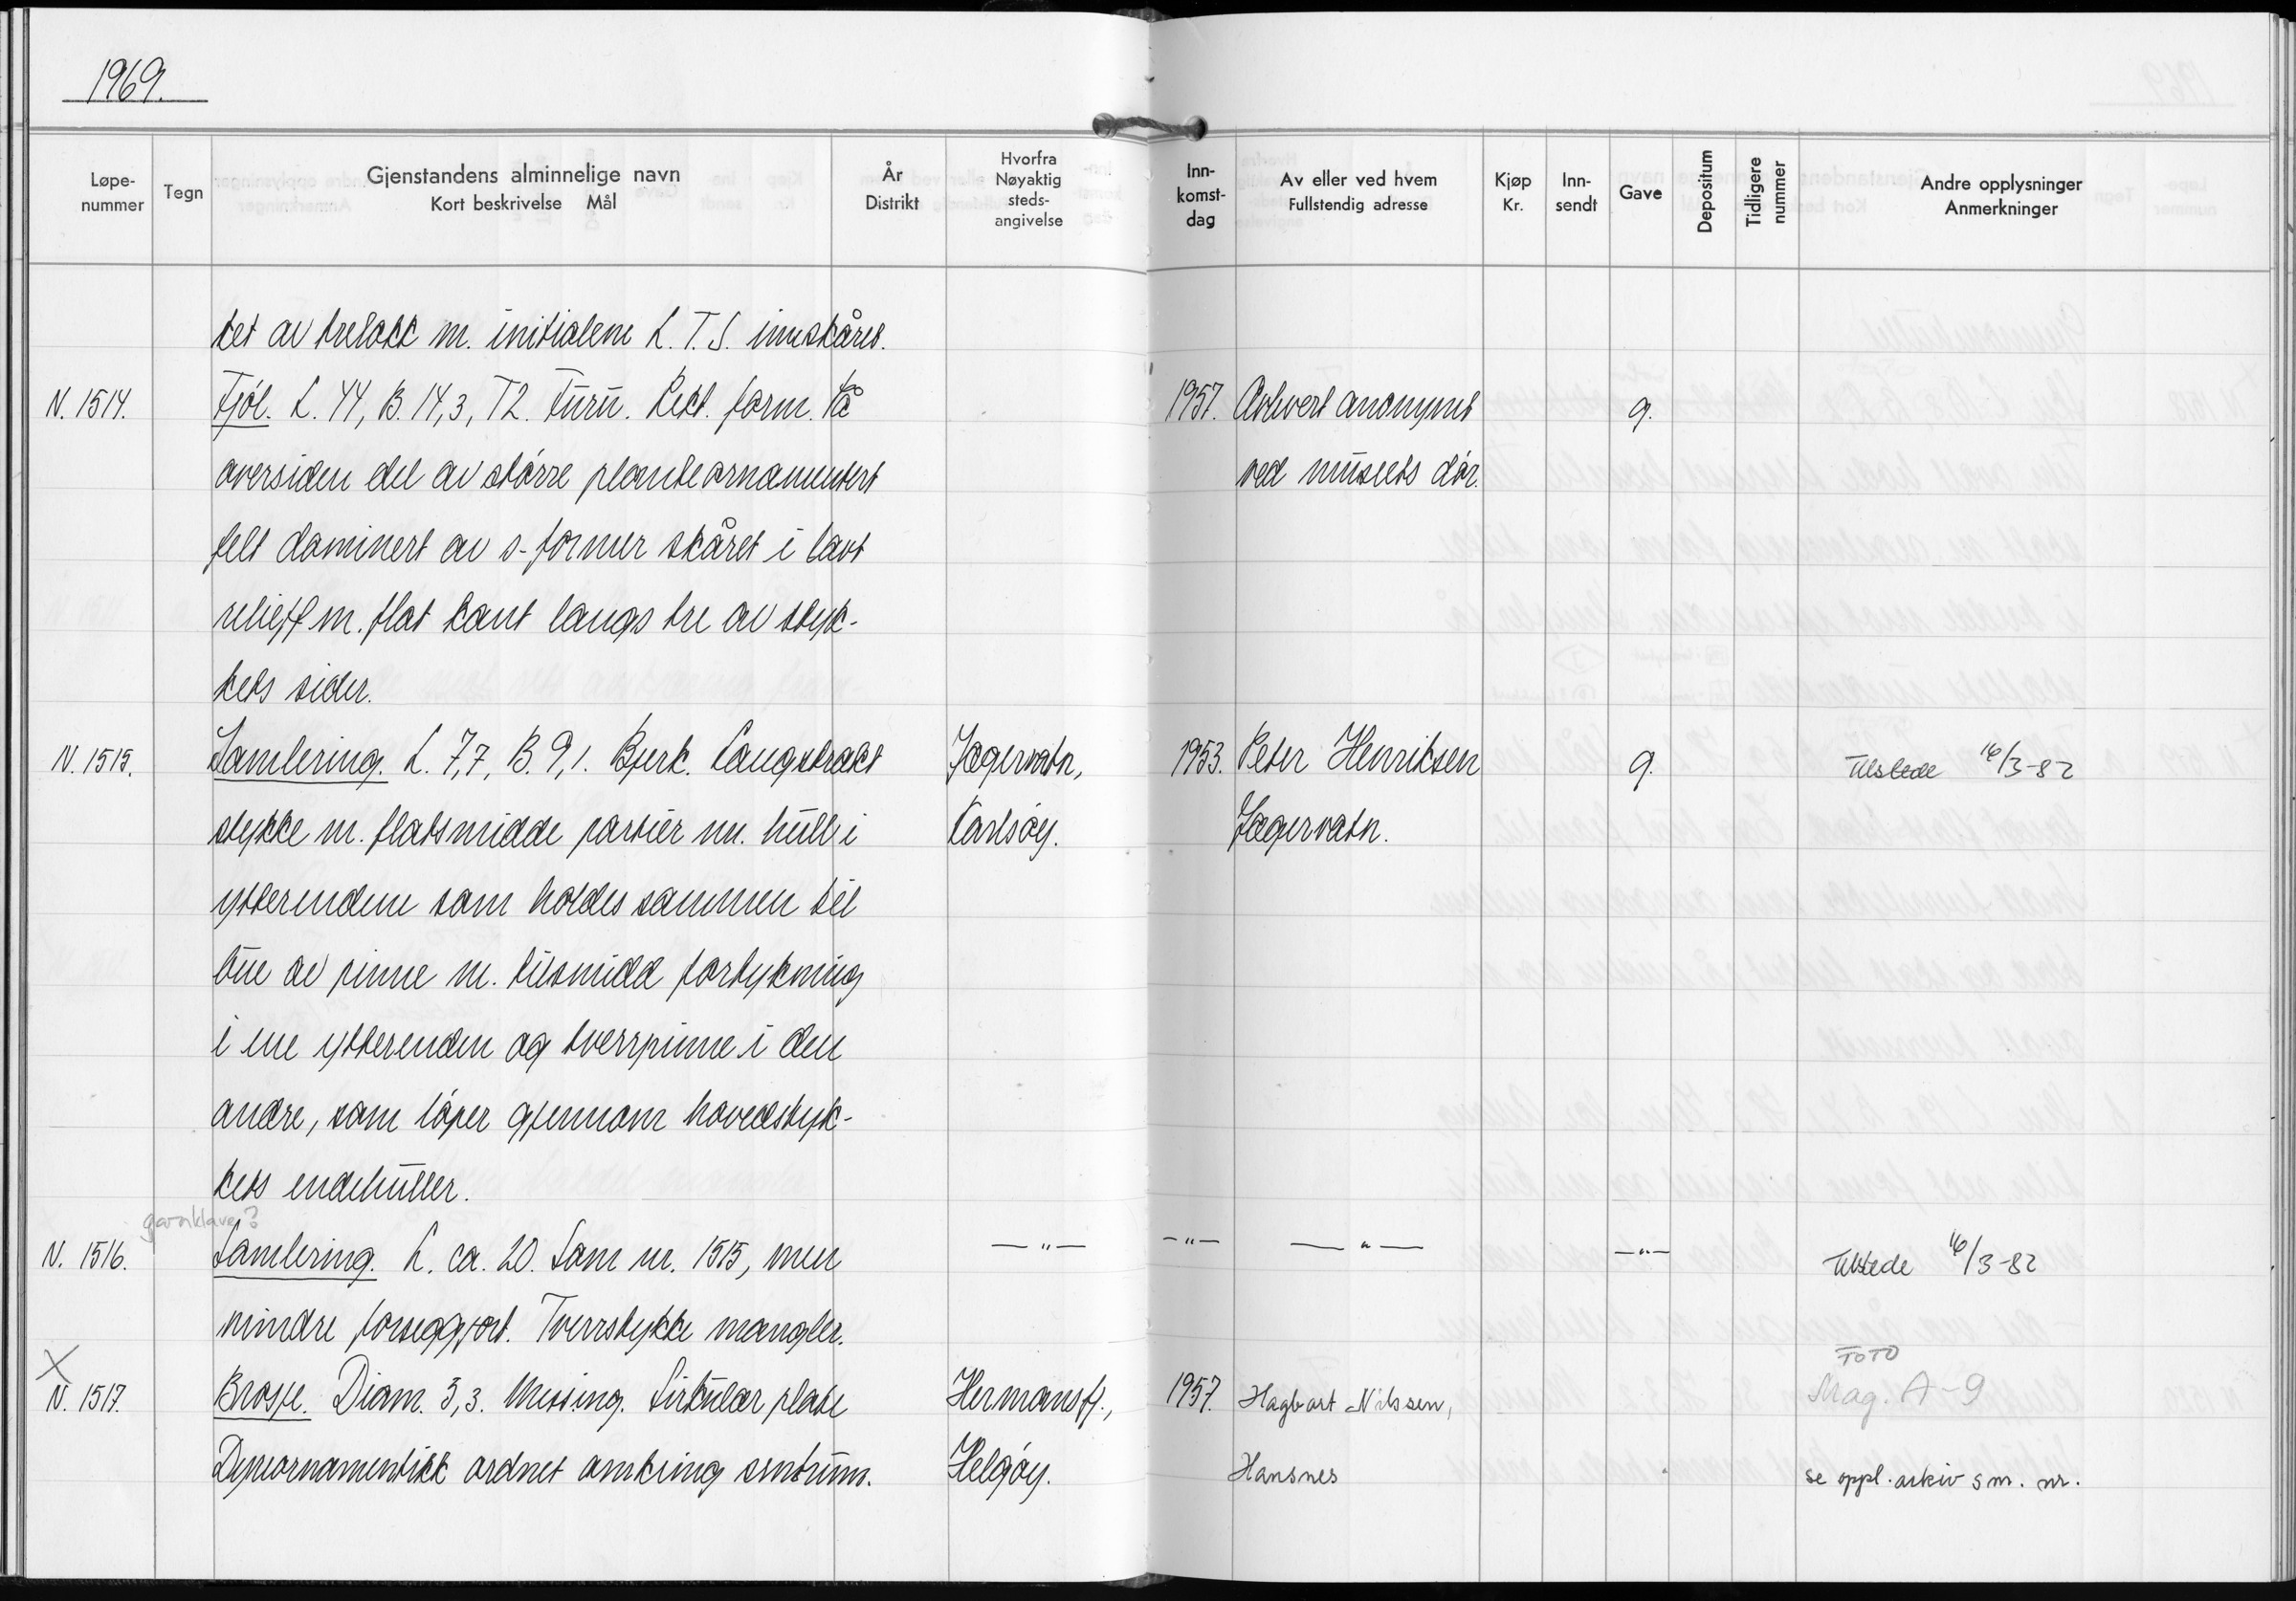 1969.
Løpe-
nummer
Tegn
Gjenstandens alminnelige navn
Kort beskrivelse Mål
År
Distrikt
Hvorfra
Nøyaktig
steds-
angivelse
Inn-
komst-
dag
Av eller ved hvem
Fullstendig adresse
Kjøp
Kr.
Inn-
sendt
Gave
Depositum
Tidligere
nummer
Andre opplysninger
Anmerkninger
tet av trelokk m. initialene L.T.S. innskåret.
N. 1514. Fjøl. L. 44, B. 14,3, T2. Furu. Rekt. form. På 1957. Avlvert anonymt g.
oversiden del av større planteornamentert ved museets dør.
felt dominert av s-former skåret i lavt
relieff m. flat kant langs tre av styk-
kets sider.
N. 1515. Samlering. L. 7,7, B. 9,1. Bjerk. Langstrakt Jægervatn, 1953. Peter Henriksen g. Tilstede 16/3-82
stykke m. flatsmidde partier m. hull i Karlsøy. Jægervatn.
ytterendene som holdes sammen til
bue av pinne m. tilsmidd fortykning
i ene ytterenden og tverrpinne i den
andre, som løper gjennom hovedstyk-
kets endehuller.
garnklave?
N. 1516. Samlering. L. ca. 20. Som nr. 1515, men —"— —"— —"— —"— Tilstede 16/3-82
mindre forseggjort. Tverrstykke mangler.
X FOTO
N. 1517. Brosje. Diam. 3,3. Messing. Sirkulær plate Hermansfj., 1957. Hagbart Nilssen, Mag. A-9
Dyreornamentikk ordnet omkring sentrum. Helgøy. Hansnes se oppl. arkiv s m. nr.